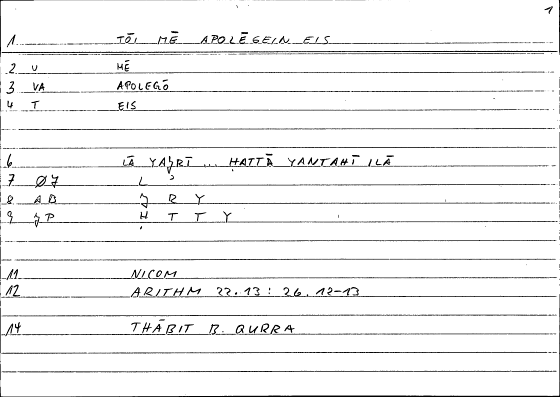 1
1 TŌI MĒ APOLĒGEIN EIS
2 U MĒ
3 VA APOLEGŌ
4 T EIS
6 LĀ YAǦRĪ ... ḤATTĀ YANTAHĪ ILĀ
7 ØJ L ʾ
8 AB Ǧ R Y
9 JP Ḥ T T Y
11 NICOM
12 ARITHM 22.13 : 26.12-13
14 THĀBIT B. QURRA